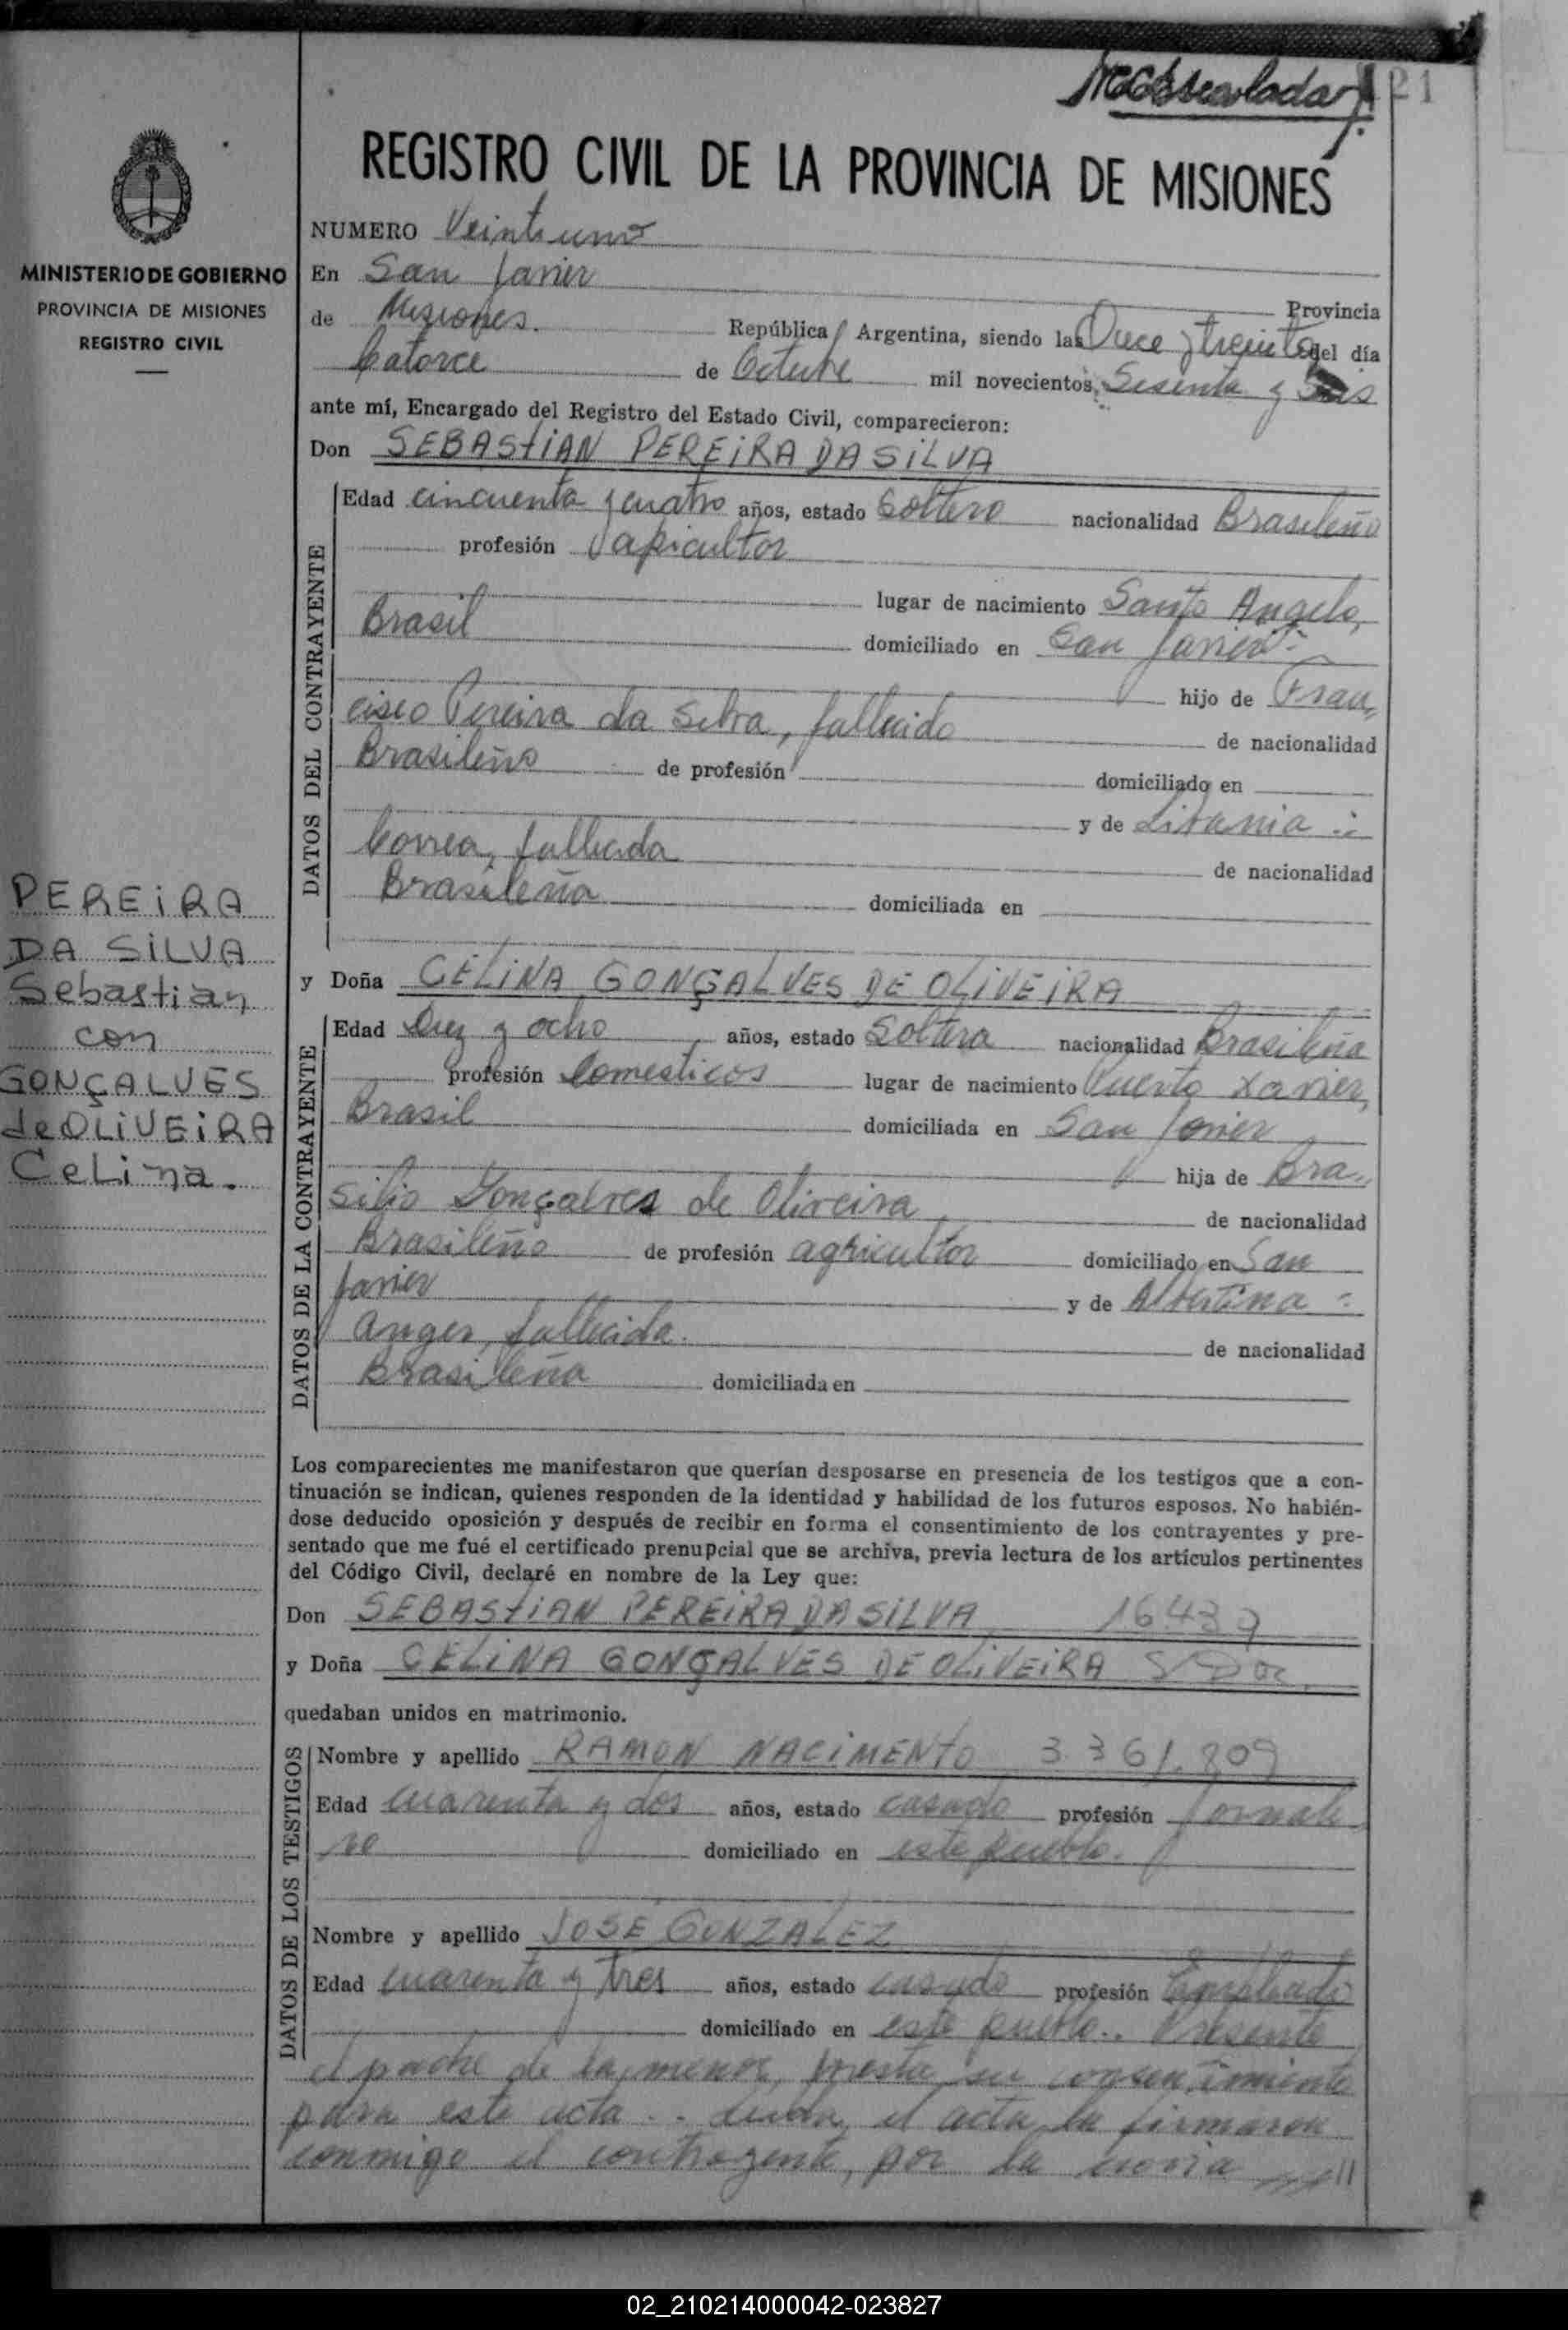 21
REGISTRO CIVIL DE LA PROVINCIA DE MISIONES
NUMERO Veintiuno
MINISTERIO DE GOBIERNO
PROVINCIA DE MISIONES
REGISTRO CIVIL
En San Javier
Provincia
de Misiones. República Argentina, siendo las Once y treinta del día
Catorce de Octubre mil novecientos Sesenta y Seis
ante mí, Encargado del Registro del Estado Civil, comparecieron:
Don SEBAStiAN PEREiRA DA SiLVA
DATOS DEL CONTRAYENTE
Edad cincuenta y cuatro años, estado Soltero nacionalidad Brasileño
profesión apicultor
lugar de nacimiento Santo Angelo,
Brasil domiciliado en San Javier
hijo de Fran
cisco Pereira da Silva, fallecido de nacionalidad
Brasileño de profesión domiciliado en
y de
Correa, fallecida de nacionalidad
Brasileña domiciliada en
PEREiRA
DA SiLVA
Sebastian
con
GONÇALVES
de OLiVEiRA
Celina.
y Doña CELiNA GONÇALVES DE OLiVEiRA
DATOS DE LA CONTRAYENTE
Edad Diez y ocho años, estado Soltera nacionalidad Brasileña
profesión Domesticos lugar de nacimiento Puerto Xavier,
Brasil domiciliada en San Javier
hija de Bra
silio Gonçalves de Oliveira de nacionalidad
Brasileño de profesión agricultor domiciliado en San
Javier y de Albertina
Anger, fallecida. de nacionalidad
Brasileña domiciliada en
Los comparecientes me manifestaron que querían desposarse en presencia de los testigos que a con-
tinuación se indican, quienes responden de la identidad y habilidad de los futuros esposos. No habién-
dose deducido oposición y después de recibir en forma el consentimiento de los contrayentes y pre-
sentado que me fué el certificado prenupcial que se archiva, previa lectura de los artículos pertinentes
del Código Civil, declaré en nombre de la Ley que:
Don SEBAStiAN PEREiRA DA SiLVA 16.439
y Doña CELiNA GONÇALVES DE OLiVEiRA S/Doc.
quedaban unidos en matrimonio.
DATOS DE LOS TESTIGOS
Nombre y apellido RAMON NACiMENtO 3.361.809
Edad cuarenta y dos años, estado casado profesión Jornale
ro domiciliado en este pueblo.
Nombre y apellido JOSÉ GONZALEZ
Edad cuarenta y tres años, estado casado profesión Empleado
domiciliado en este pueblo.. Presente
el padre de la menor, presta su consentimiento
para este acta.. Leida el acta la firmaron
conmigo el contrayente, por la novia
02_210214000042-023827